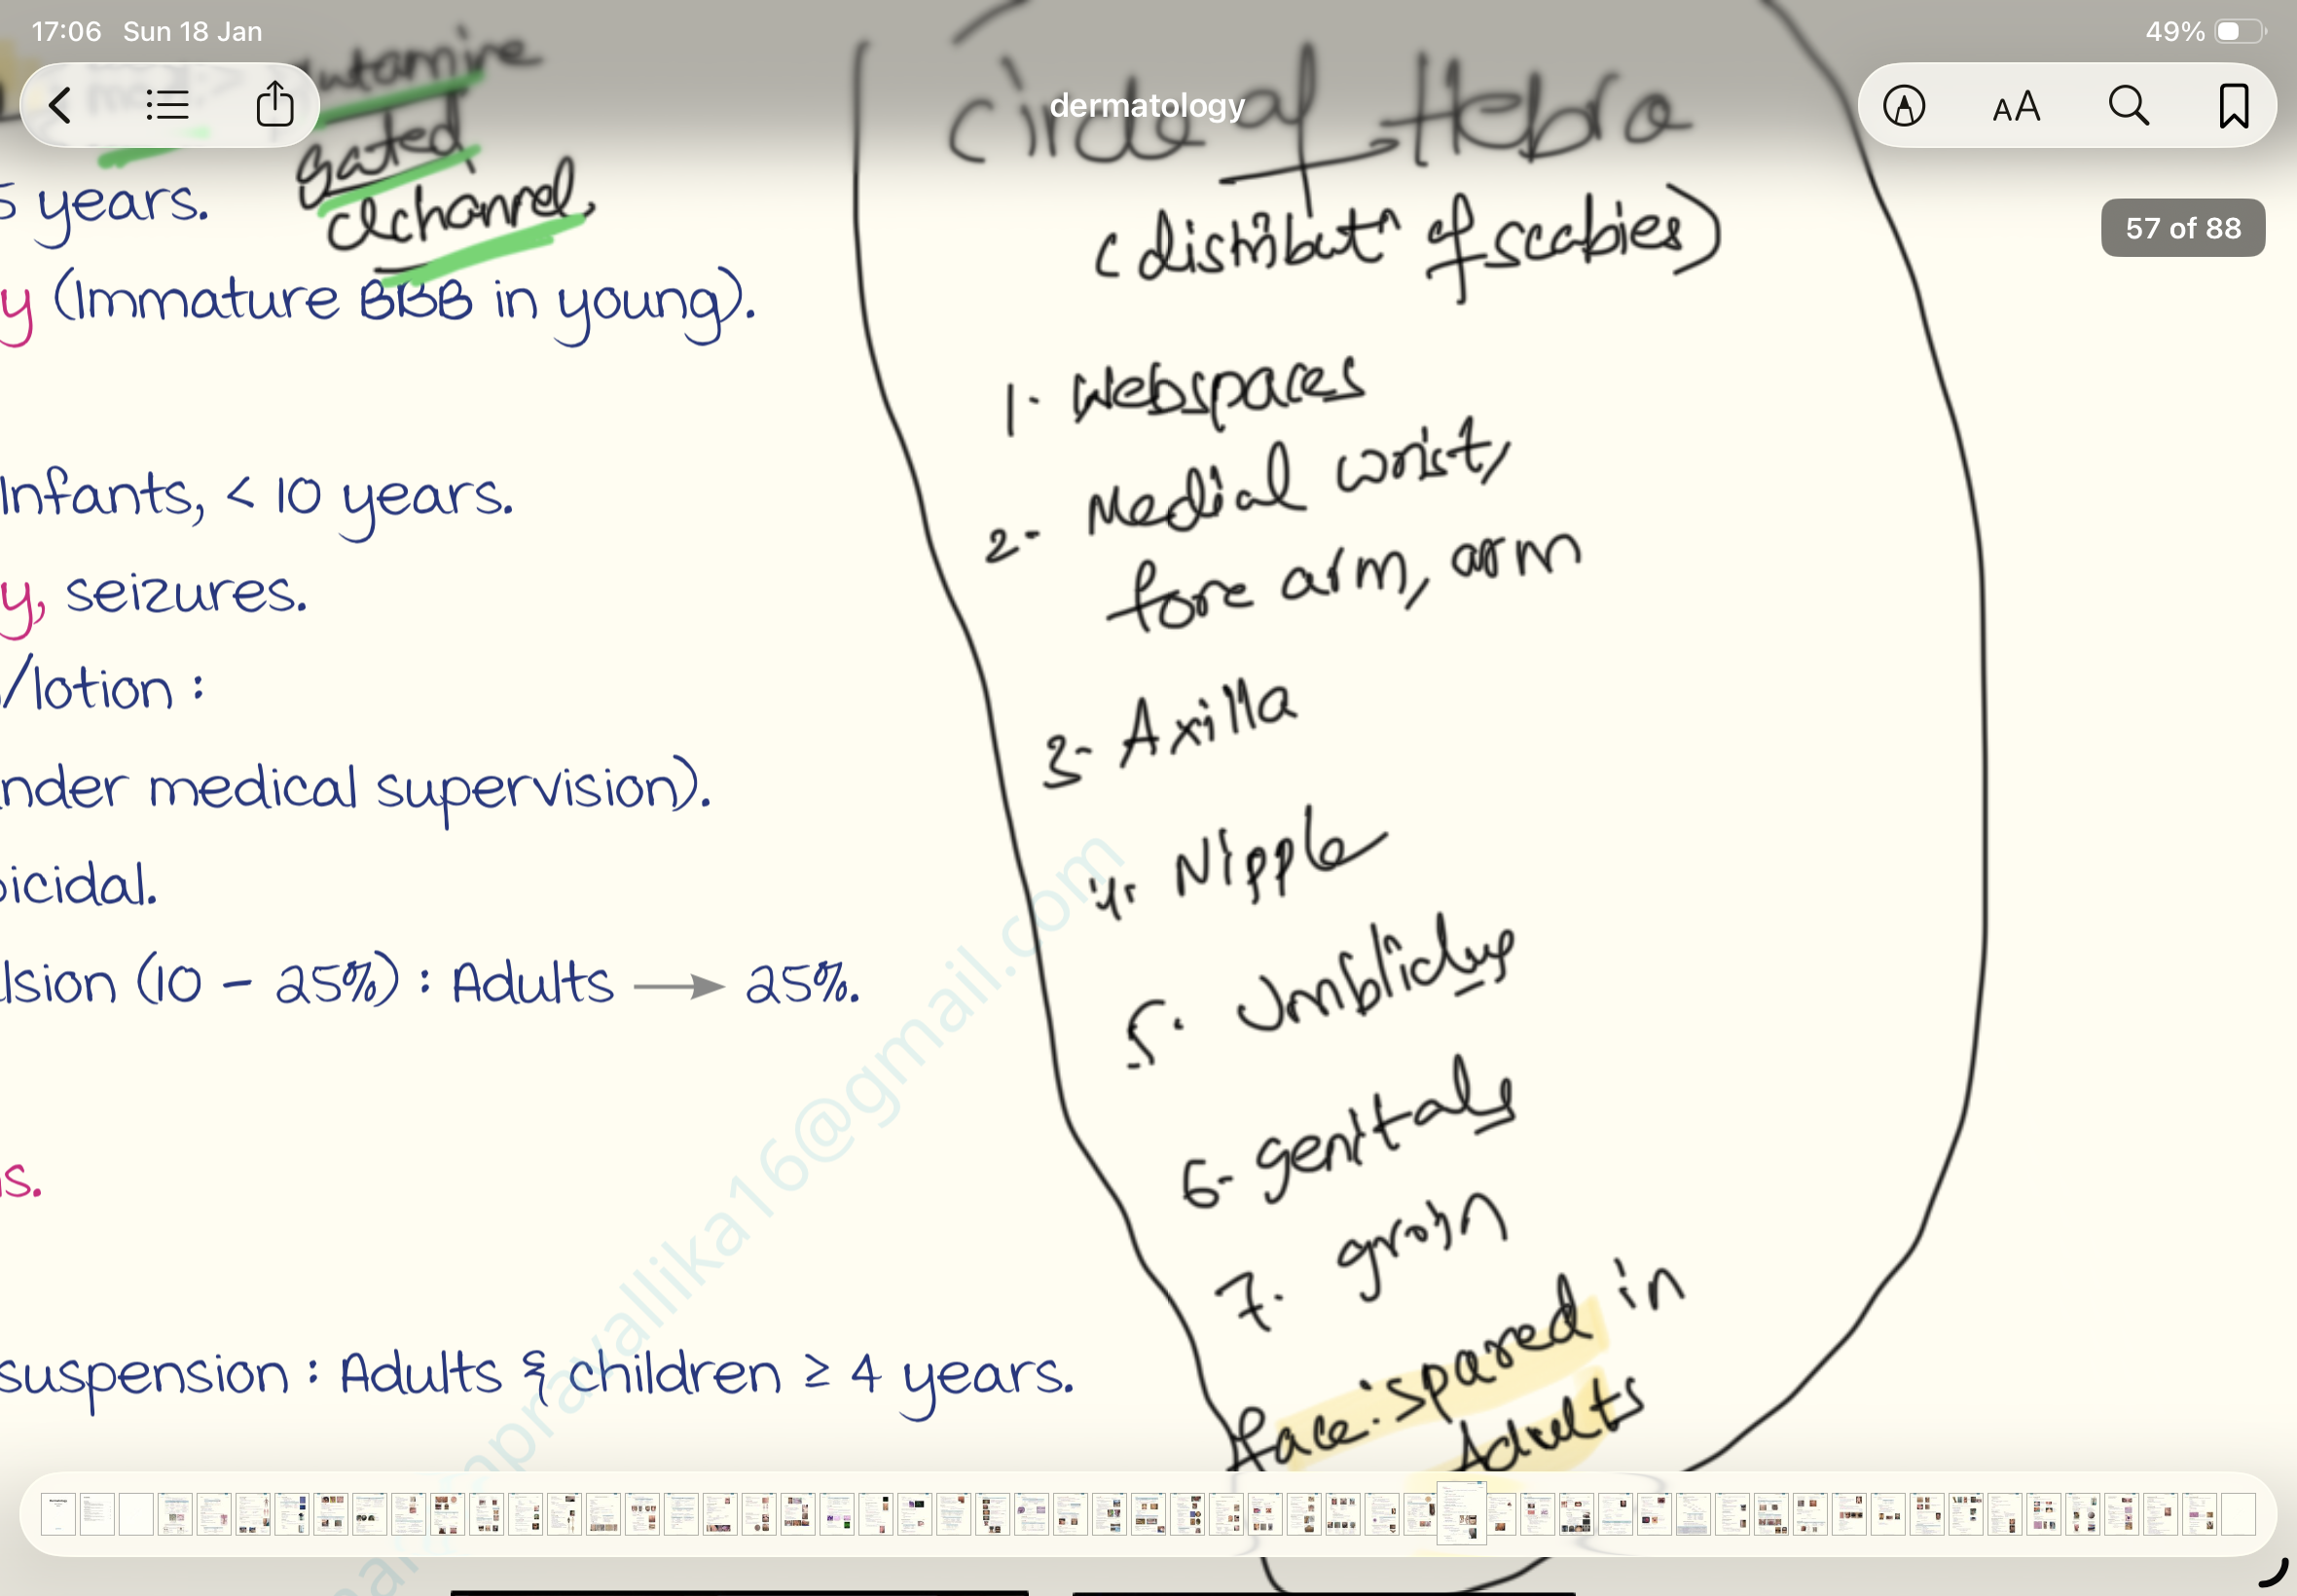 17:06 Sun 18 Jan
49%
dermatology
57 of 88
gated
cl channel,
5 years.
y (Immature BBB in young).
Infants, < 10 years.
y, seizures.
/lotion :
nder medical supervision).
icidal.
lsion (10 - 25%) : Adults → 25%.
s.
suspension : Adults & children ≥ 4 years.
Circle of Hebra
(distributⁿ of scabies)
1. Webspaces
2- Medial wrist,
fore arm, arm
3- Axilla
4. Nipple
5. Umblicus
6- genitals
7. groin
face spared in
Adults
pravallika16@gmail.com